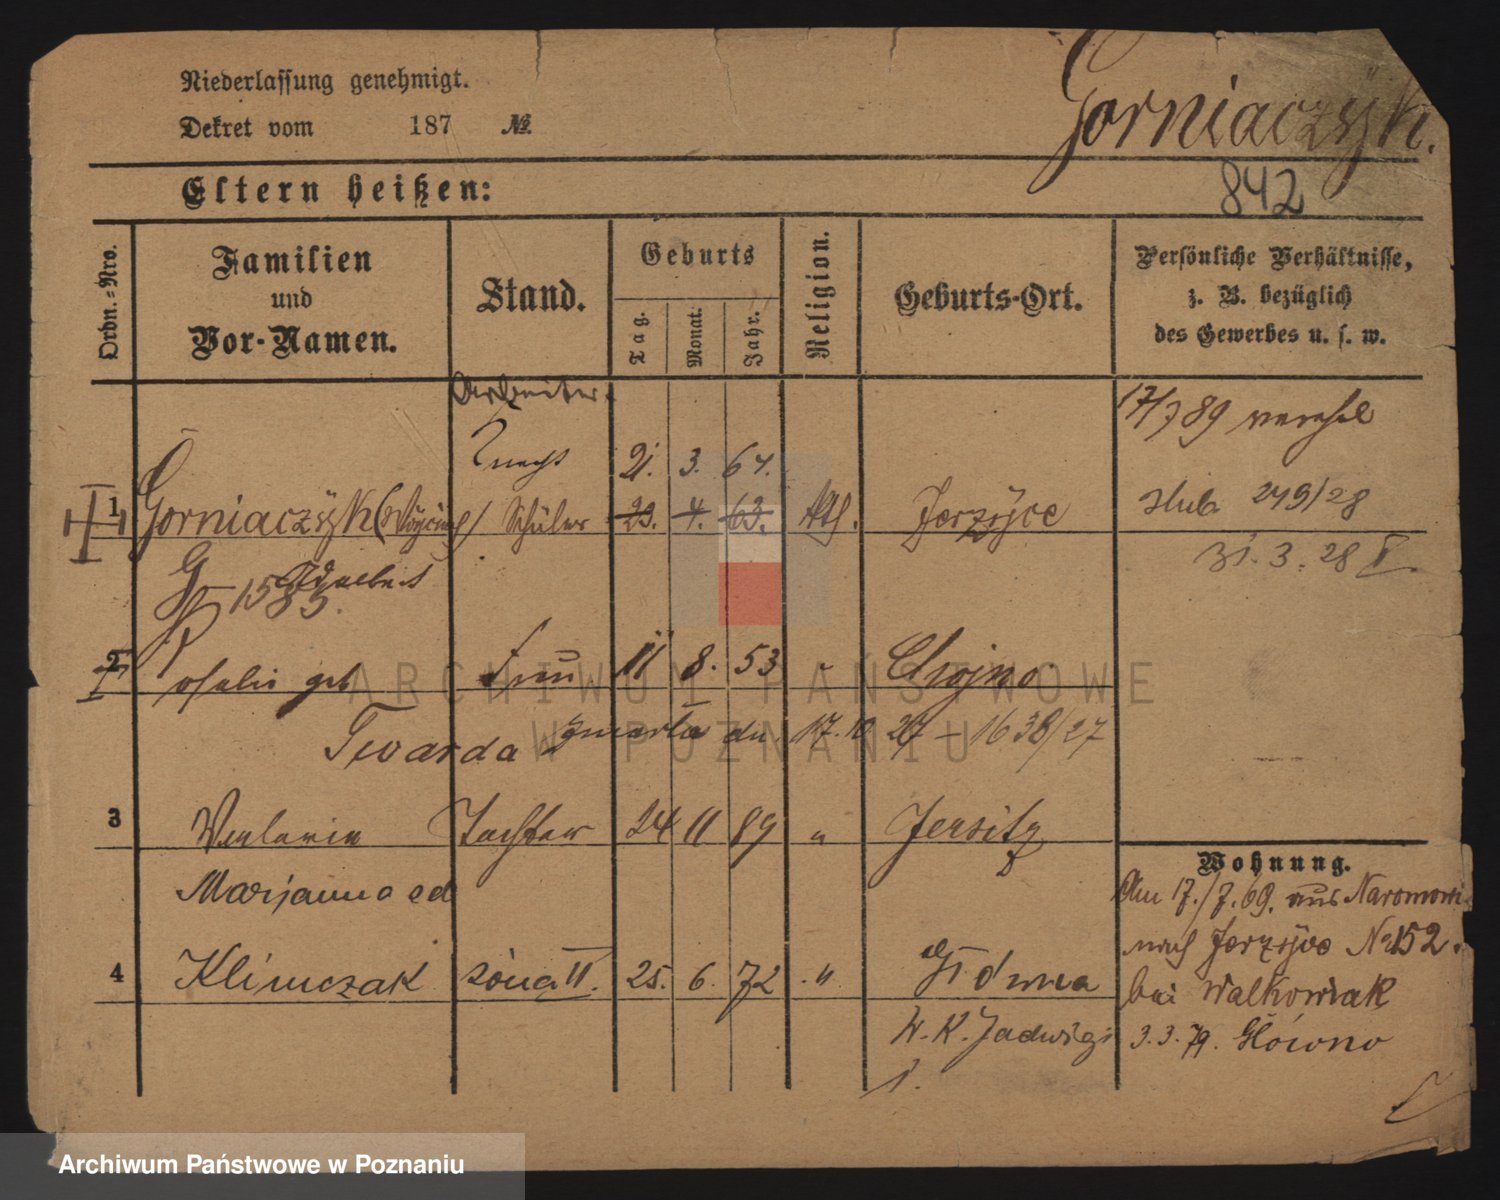 Niederlassung genehmigt.
Dekret vom 187 №
Gorniaczÿk.
842
Eltern heißen:
Ordn.-Nro.
Familien und Vor-Namen.
Stand.
Geburts
Tag. Monat. Jahr.
Religion.
Geburts-Ort.
Persönliche Verhältnisse, z. B. bezüglich des Gewerbes u. s. w.
Arbeiter.
17/7 89 
Knecht 21. 3. 64.
1 Gorniaczÿk ( ) Schüler 23. 4. 63. kth. Jerzÿce
ślub 249/28
31.3.28
1585. Adalbert
2 Rosalie geb Frau 11 8. 53 " Chojno
Twarda zmarła dn. 17.10 27 – 1638/27
3 Valerie Tochter 24 11 89 " Jersitz
Marjanna ed
4 Klimczak żona II. 25. 6. 72 "
W. K. Jadwigi
1.
Wohnung.
Am 17./7. 69. aus Naramowi
nach Jerzÿce № 152.
bei Walkowiak
3.3.79. Główno
ARCHIWUM PAŃSTWOWE
W POZNANIU
Archiwum Państwowe w Poznaniu